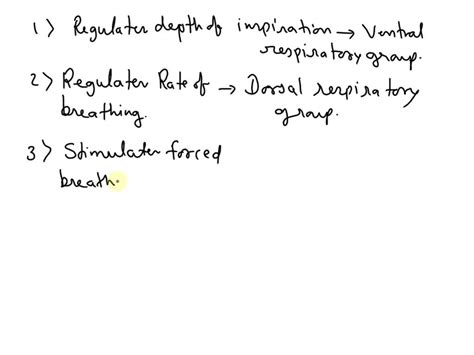 1) Regulater depth of inspiration → Ventral
respiratory group.
2) Regulater Rate of → Dorsal respiratory
breathing. group.
3) Stimulater forced
breath.